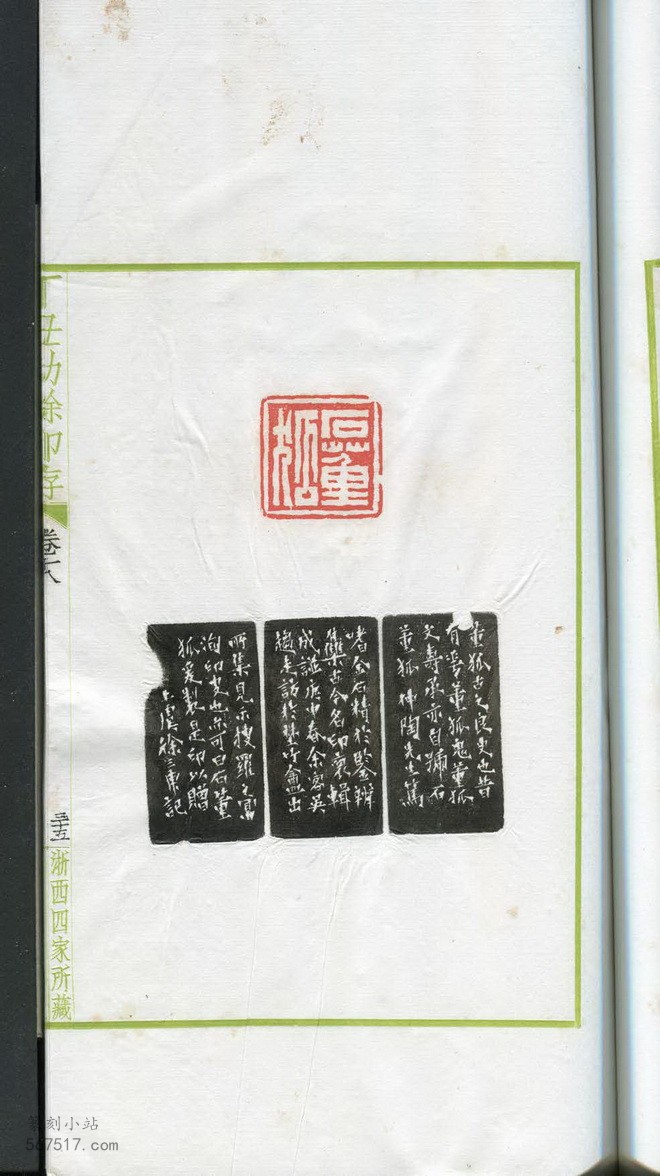 石董狐
董狐古之良史也昔
有書董狐鬼董狐
文壽承亦自號石
董狐仲陶先生篤
嗜金石精於鑒辨
集古今名印裒輯
成譜庚申春余客英
趨走訪於
盦出
所集見示搜羅之富
洵印史也亦可曰石董
狐爰製是印以贈
徐三庚記
丁丑劫餘印存
卷六
三十五
浙西四家所藏
篆刻小站
567517.com